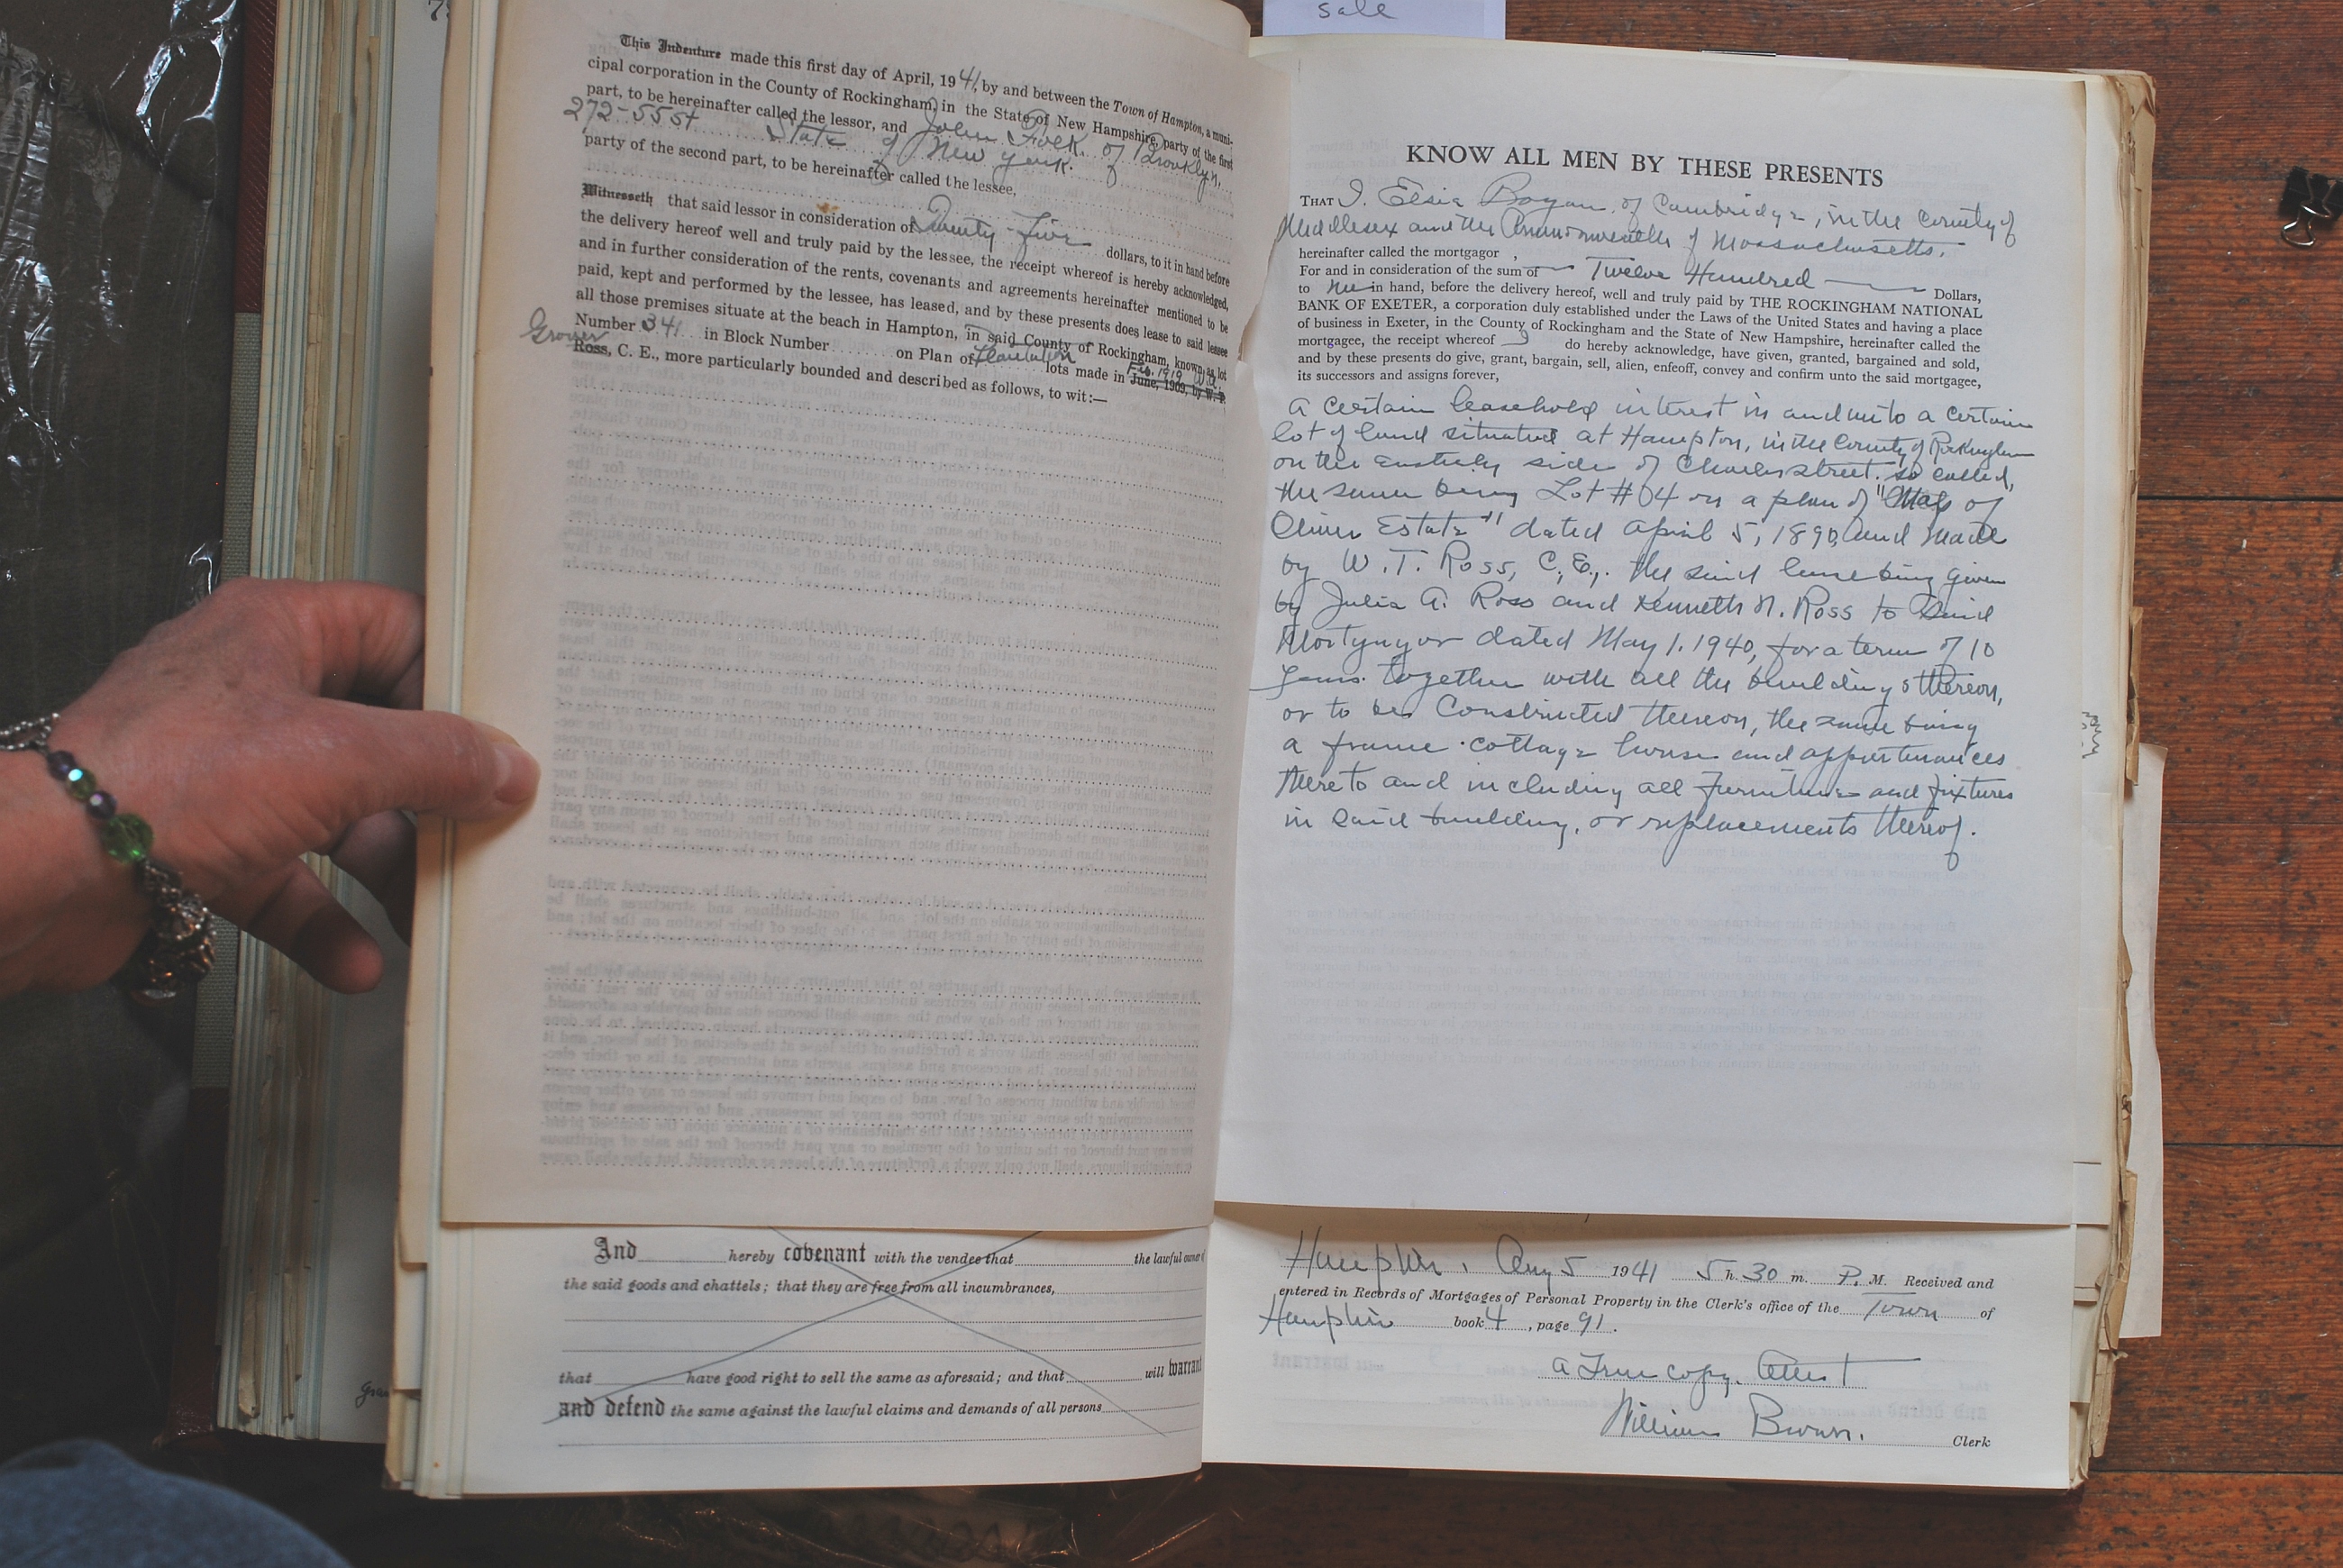 sale
This Indenture made this first day of April, 1941, by and between the Town of Hampton, a muni-
cipal corporation in the County of Rockingham, in the State of New Hampshire, party of the first
part, to be hereinafter called the lessor, and John of Brooklyn,
272-55st State of New York.
party of the second part, to be hereinafter called the lessee,
Witnesseth that said lessor in consideration of Twenty-Five dollars, to it in hand before
the delivery hereof well and truly paid by the lessee, the receipt whereof is hereby acknowledged,
and in further consideration of the rents, covenants and agreements hereinafter mentioned to be
paid, kept and performed by the lessee, has leased, and by these presents does lease to said lessee
all those premises situate at the beach in Hampton, in said County of Rockingham, known as lot
Number 341 in Block Number on Plan of Plantation lots made in Feb. 1919 W.A. June, 1909, by W. T.
Grover
Ross, C. E., more particularly bounded and described as follows, to wit:—
And hereby covenant with the vendee that the lawful owner
the said goods and chattels; that they are free from all incumbrances,
that have good right to sell the same as aforesaid; and that will warrant
and defend the same against the lawful claims and demands of all persons
KNOW ALL MEN BY THESE PRESENTS
THAT I, Elsie Bogan, of Cambridge, in the County of
Middlesex and the Commonwealth of Massachusetts.
hereinafter called the mortgagor ,
For and in consideration of the sum of Twelve Hundred Dollars,
to me in hand, before the delivery hereof, well and truly paid by THE ROCKINGHAM NATIONAL
BANK OF EXETER, a corporation duly established under the Laws of the United States and having a place
of business in Exeter, in the County of Rockingham and the State of New Hampshire, hereinafter called the
mortgagee, the receipt whereof I do hereby acknowledge, have given, granted, bargained and sold,
and by these presents do give, grant, bargain, sell, alien, enfeoff, convey and confirm unto the said mortgagee,
its successors and assigns forever,
A certain leasehold interest in and unto a certain
lot of land situated at Hampton, in the County of Rockingham
on the Easterly side of Charles street. so called,
the same being Lot # on a plan of "Map of
Oliver Estate" dated April 5, 1890, and made
by W. T. Ross, C.E., the said lease being given
by Julia A. Ross and Kenneth N. Ross to said
Mortgagor dated May 1. 1940, for a term of 10
years. together with all the buildings thereon,
or to be Constructed thereon, the same being
a frame cottage house and appurtenances
thereto and including all furniture and fixtures
in said building, or replacements thereof.
Hampton, Aug 5 1941 5 h. 30 m. P. M. Received and
entered in Records of Mortgages of Personal Property in the Clerk's office of the Town of
Hampton book 4, page 91.
A True copy. Attest
William Brown. Clerk